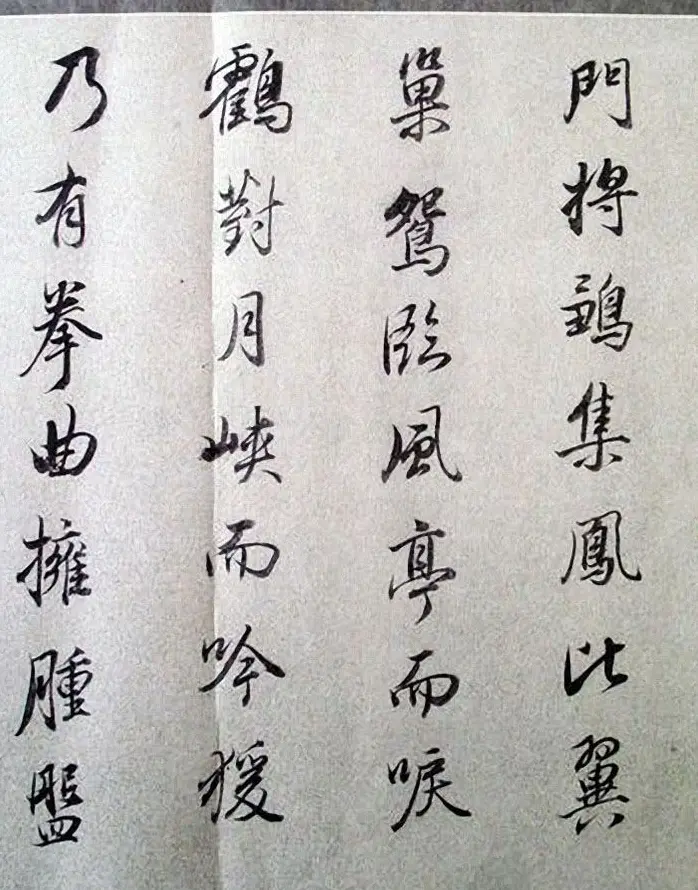 門將鶵集鳳比翼
巢鴛臨風亭而唳
鸖對月峽而吟猨
乃有拳曲擁腫盤